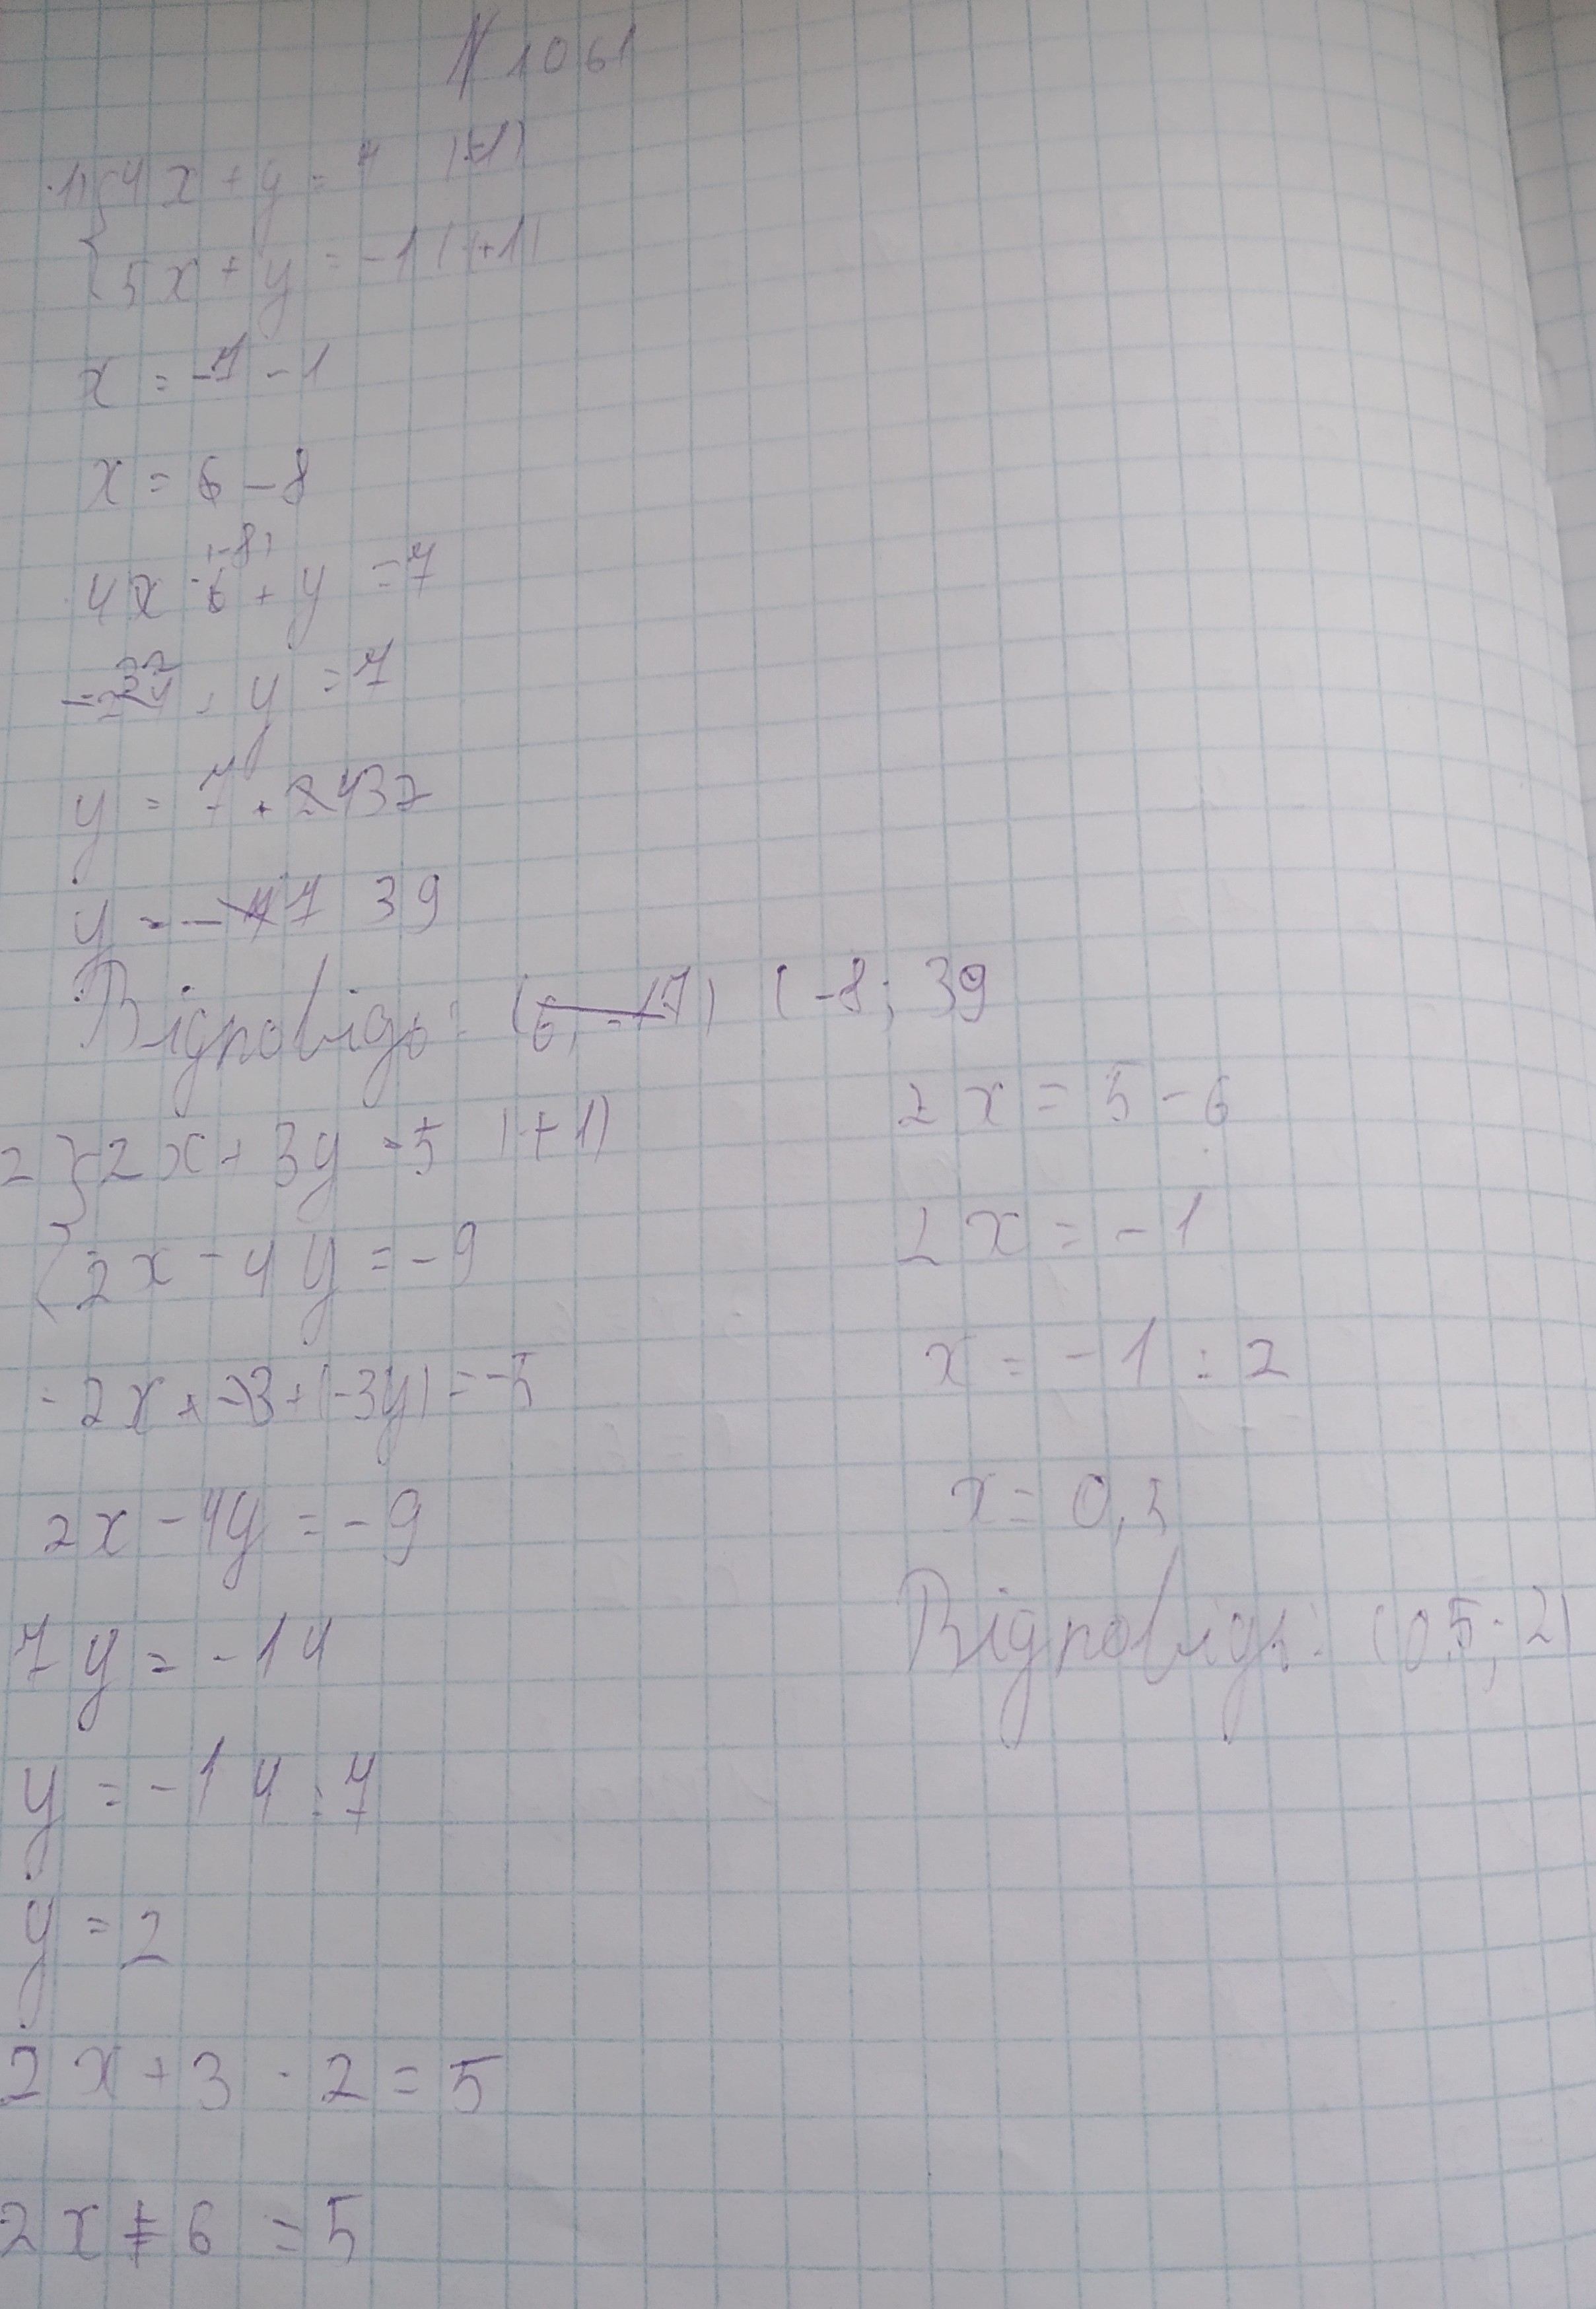 N 1061
1) { 4x + y = 7 |(-1)
{ 5x + y = -1 |(+1)
x = -7 - 1
x = -8
4x · (-8) + y = 7
-32 + y = 7
y = 7 + 32
y = 39
Відповідь: (-8; 39
2 } 2x + 3y = 5 |+1)
{ 2x - 4y = -9
-2x + (-3y) = -5
2x - 4y = -9
7y = -14
y = -14 : 7
y = 2
2x + 3 · 2 = 5
2x + 6 = 5
2x = 5 - 6
2x = -1
x = -1 : 2
x = 0,5
Відповідь: (0 5; 2)